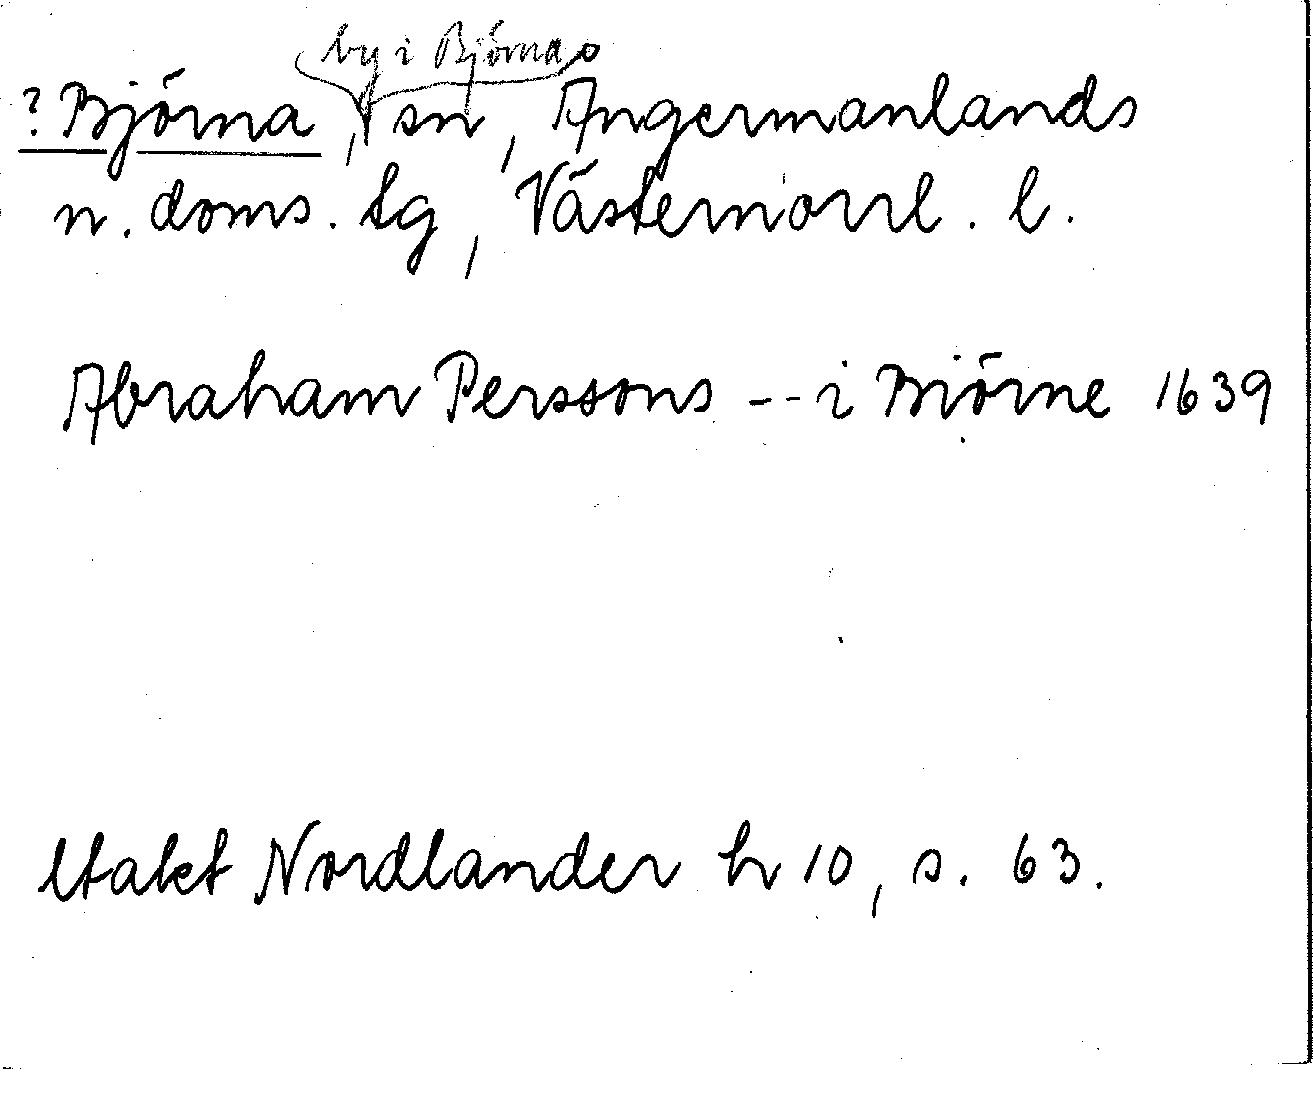 by i Björna
? Björna, sn, Ångermanlands
n. doms. tg, Västernorrl. l.
Abraham Perssons -- i Biörne 1639
Utakt Nordlander h 10, s. 63.